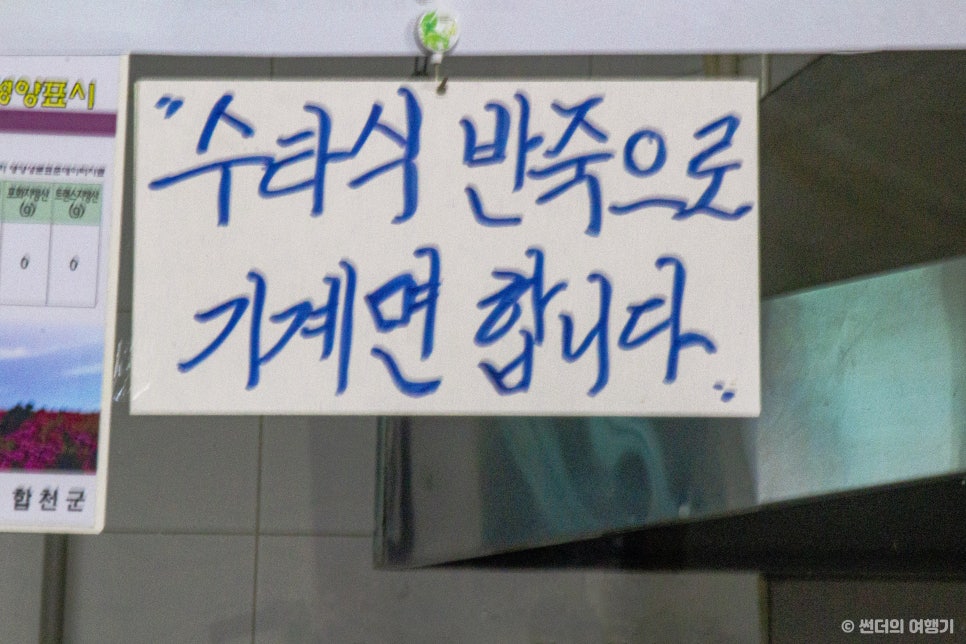 영양표시
포화지방산 트랜스지방산
(g) (g)
6 6
"수타식 반죽으로
기계면 합니다."
합천군
© 썬더의 여행기